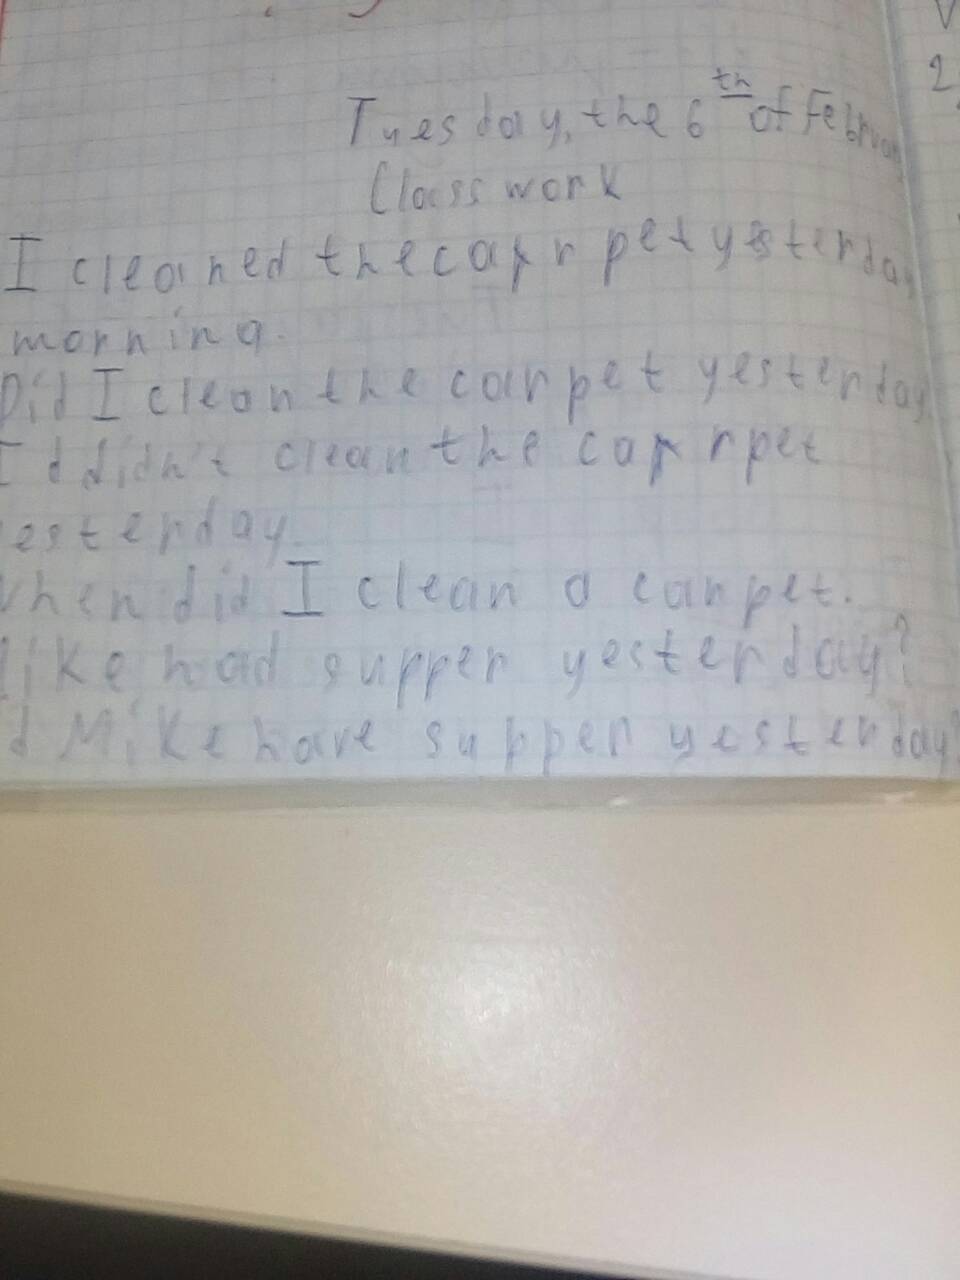 Tuesday, the 6th of Februar
Class work
I cleaned the carpet yesterday
morning.
Did I clean the carpet yesterday
I didn't clean the carpet
esterday.
hen did I clean a carpet.
ike had supper yesterday?
d Mike have supper yesterday?
2